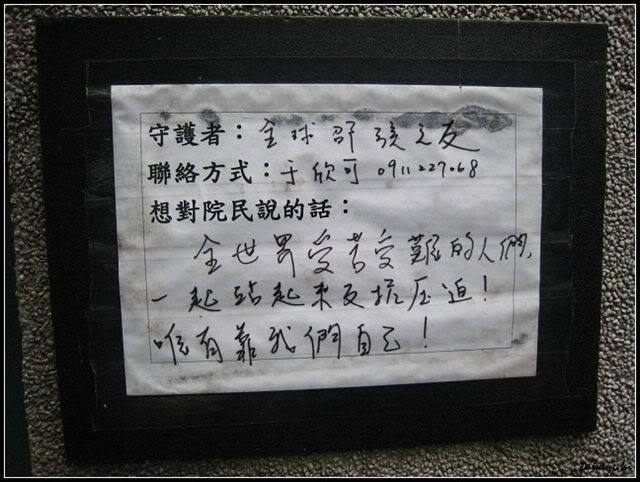 守護者：全球舒競之友
聯絡方式：于欣可 0911227068
想對院民說的話：
全世界受苦受難的人們，
一起站起來反抗压迫！
唯有靠我們自己！
takayuki